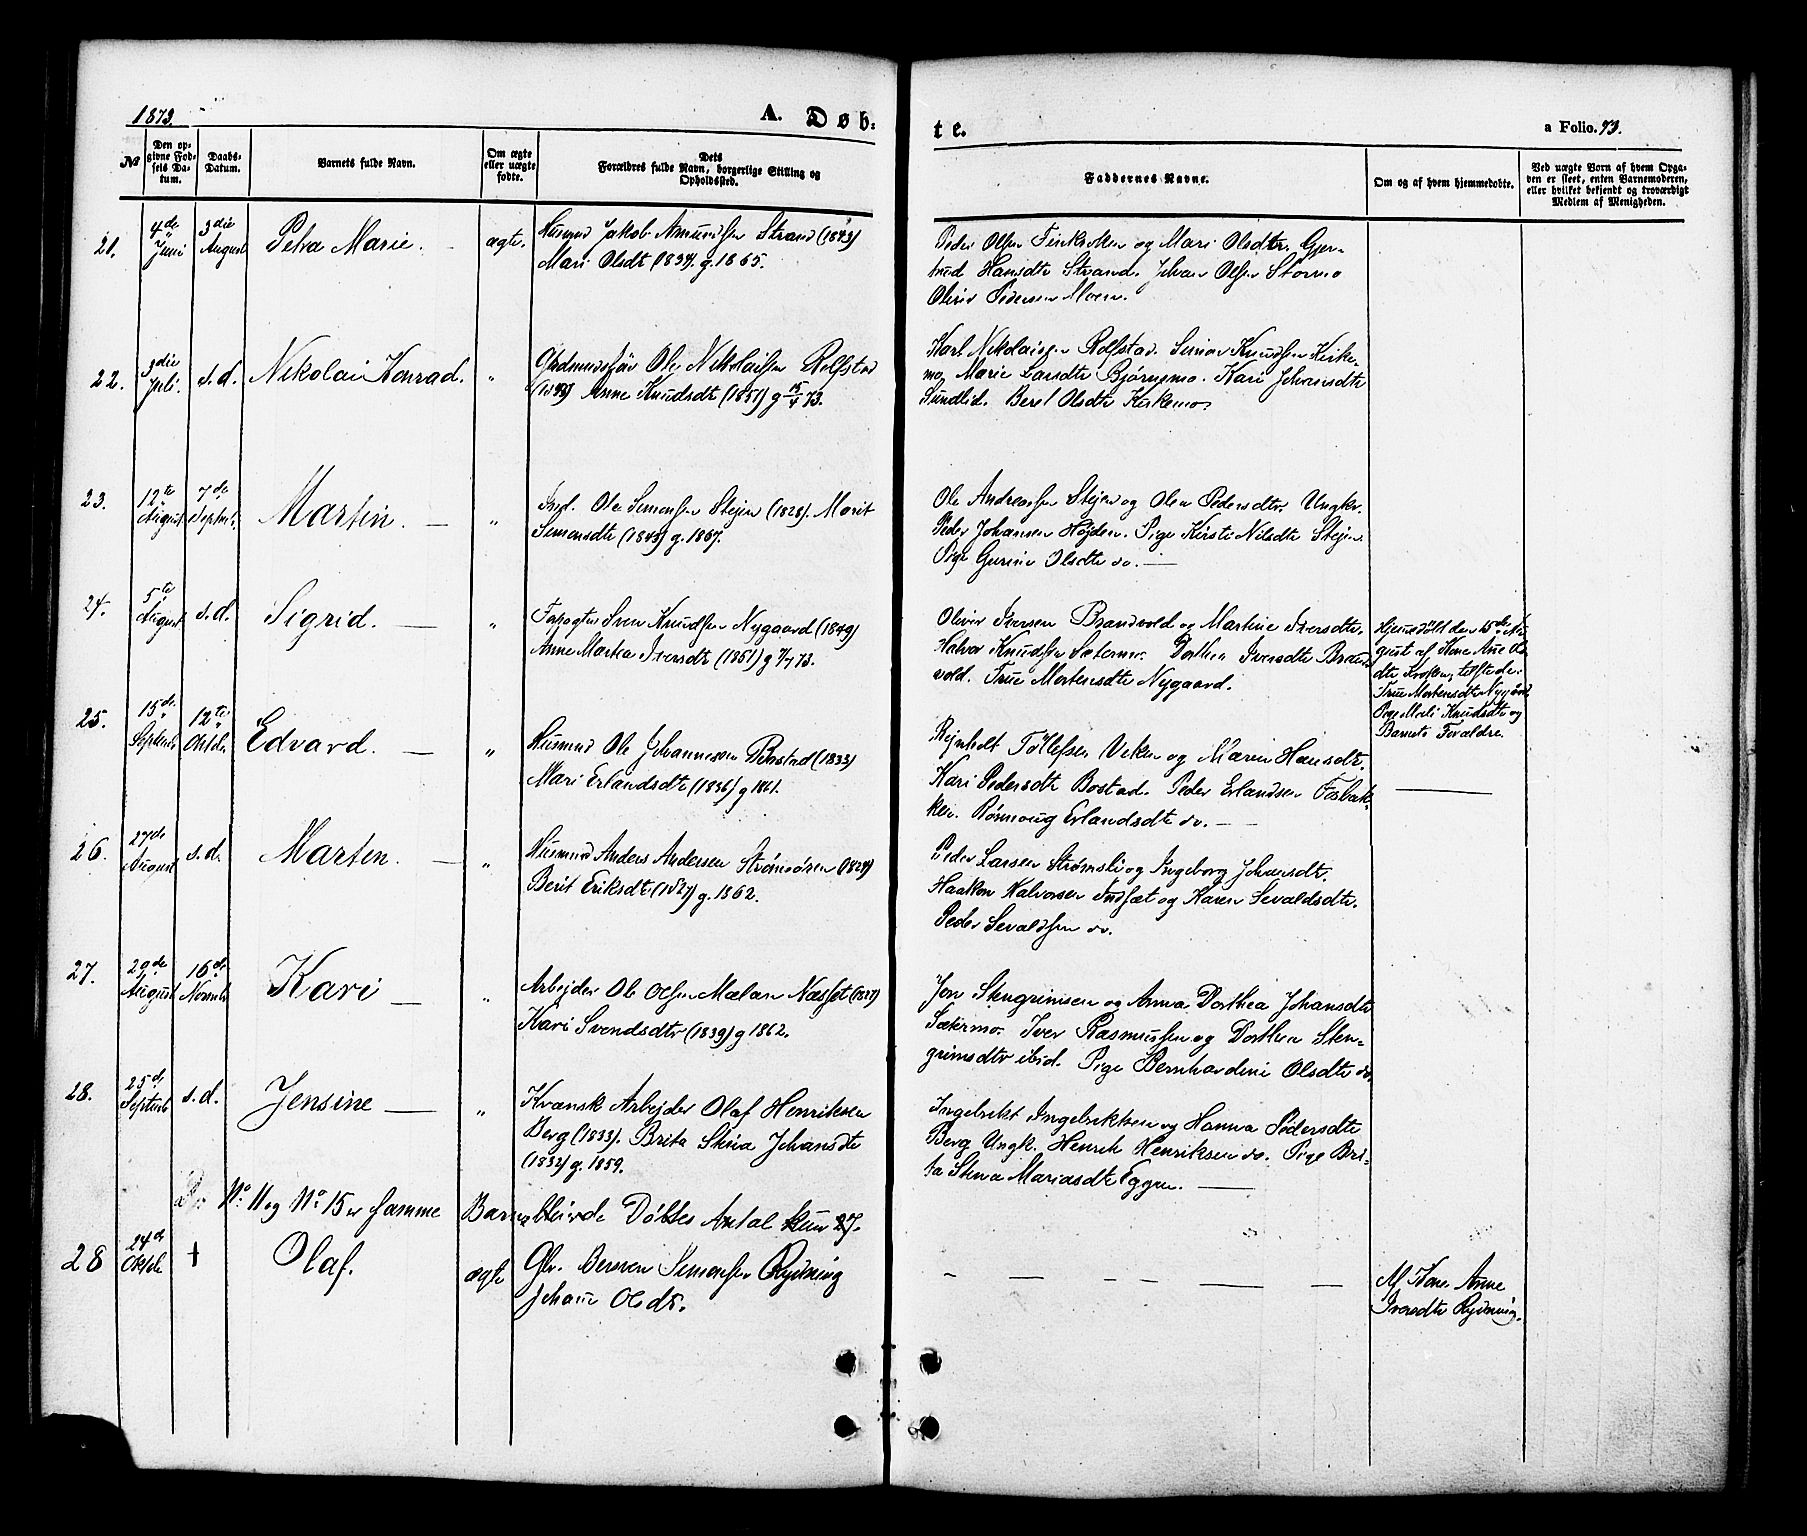 1873.
A. Døb:
te.
a Folio. 93.
No
Den op-
givne Fød-
sels Da-
tum.
Daabs-
Datum.
Barnets fulde Navn.
Om ægte
eller uægte
fødte.
Dets
Forældres fulde Navn, borgerlige Stilling og
Opholdssted.
Faddernes Navne.
Om og af hvem hjemmedøbte.
Ved uægte Børn af hvem Opga-
ven er skeet, enten Barnemoderen,
eller hvilket bekjendt og troværdigt
Medlem af Menigheden.
21.
4de
Juni
3die
August
Petra Marie.
ægte.
Husmd Jakob Amundsen Strand (1843)
Mari Olsdt (1834). g. 1865.
Peder Olsen og Mari Olsdtr. Gjer-
trud Hansdtr Strand. Johan Olsen Stormo
Oliver Pedersen Moen.
22.
3die
Juli.
s.d.
Nikolai Konrad.
"
Ole Nikolaisen Rolfstad
Anne Knudsdt (1851) g 15/4 73.
Karl Nikolaisen Rolfstad. Simon Knudsen Kirke-
mo, Marie Larsdtr Bjørnsmo. Kari Johansdtr
Sundlid. Beret Olsdtr Kirkemo.
23.
12te
August
7de
Septbr.
Martin.
"
Ole Simonsen Stejen (1828). Marit
Simonsdtr g. 1867.
Ole Andreassen Stejen og Olea Pedersdtr. Ungkr.
Peder Johansen Højden. Pige Kirsti Nilsdtr Stejen.
Pige Gurine Olsdtr do.
24.
5te
August
s.d.
Sigrid.
"
Forpagter Sven Knudsen Nygaard (1849)
Anne Martea Iversdt (1851) g 7/7 73.
Oliver Iversen Brandvold og Martine Iversdtr.
Halvor Knudsen Sætermo. Dorthea Iversdtr Brand-
vold. Frue Mortensdtr Nygaard.
Hjemedøbt den 15de Au-
gust af Kone Ane
dtr Krokan, tilstede:
Frue Mortensdtr Nygård,
Pige Mali Knudsdtr og
Barnets Forældre.
25.
15de
Septembr
12te
Oktbr.
Edvard.
"
Husmd Ole Johannesen Bostad (1833)
Mari Erlandsdtr (1836) g 1861.
Rejnholt Tollefsen Viken og Maren Hansdtr.
Kari Pedersdtr Bostad. Peder Erlandsen Fosbak-
ken. Rønnoug Erlandsdtr do.
26.
27de
August
s.d.
Marten.
"
Husmd Anders Andersen Strømsøren (1824)
Berit Eriksdt (1827) g. 1862.
Peder Larsen Strømsli og Ingeborg Johansdtr.
Haakon Halvorsen Indsæt og Karen Sevaldsdtr.
Peder Sevaldsen do.
27.
29de
August
16de
Novmbr
Kari
"
Arbejder Ole Olsen Mælan Næsset
Kari Svendsdtr (1839) g 1862.
Jon Stengrimsen og Anna Dorthea Johansdtr
Sætermo. Iver Rasmussen og Dorthea Sten-
grimsdtr ibid. Pige Bernhardine Olsdtr do.
28.
25de
Septmbr
s.d.
Jensine
"
Kvænsk Arbejder Olaf Henriksen
Berg (1833). Brita Stina Johansdtr
(1832) g. 1859.
Ingebrikt Ingebriktsen og Hanna Pedersdtr
Berg Ungk. Henrik Henriksen do. Pige Bri-
ta Stina Mariasdtr Eggen.
No. 11 og No. 15 er samme Barn, blivde Døbtes Antal kun 27.
28
24de
Oktbr.
+
Olaf.
ægte
Simonsen Rydning
Johane Olsdtr.
Kone Anne
Iversdtr Rydning.